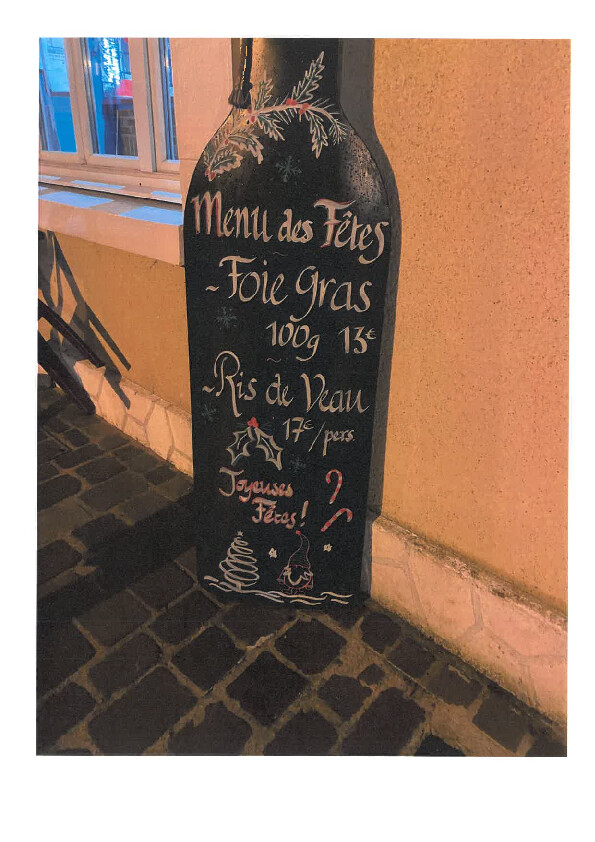 Menu des Fêtes
- Foie gras
100g 13€
- Ris de Veau
17€/pers
Joyeuses
Fêtes!